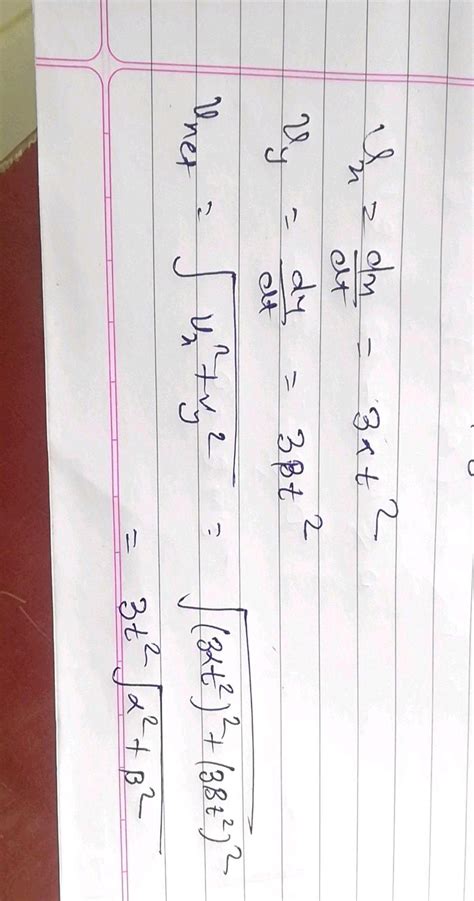 vx = dx/dt = 3αt²
vy = dy/dt = 3βt²
vnet = √(vx² + vy²) = √((3αt²)² + (3βt²)²)
= 3t² √(α² + β²)